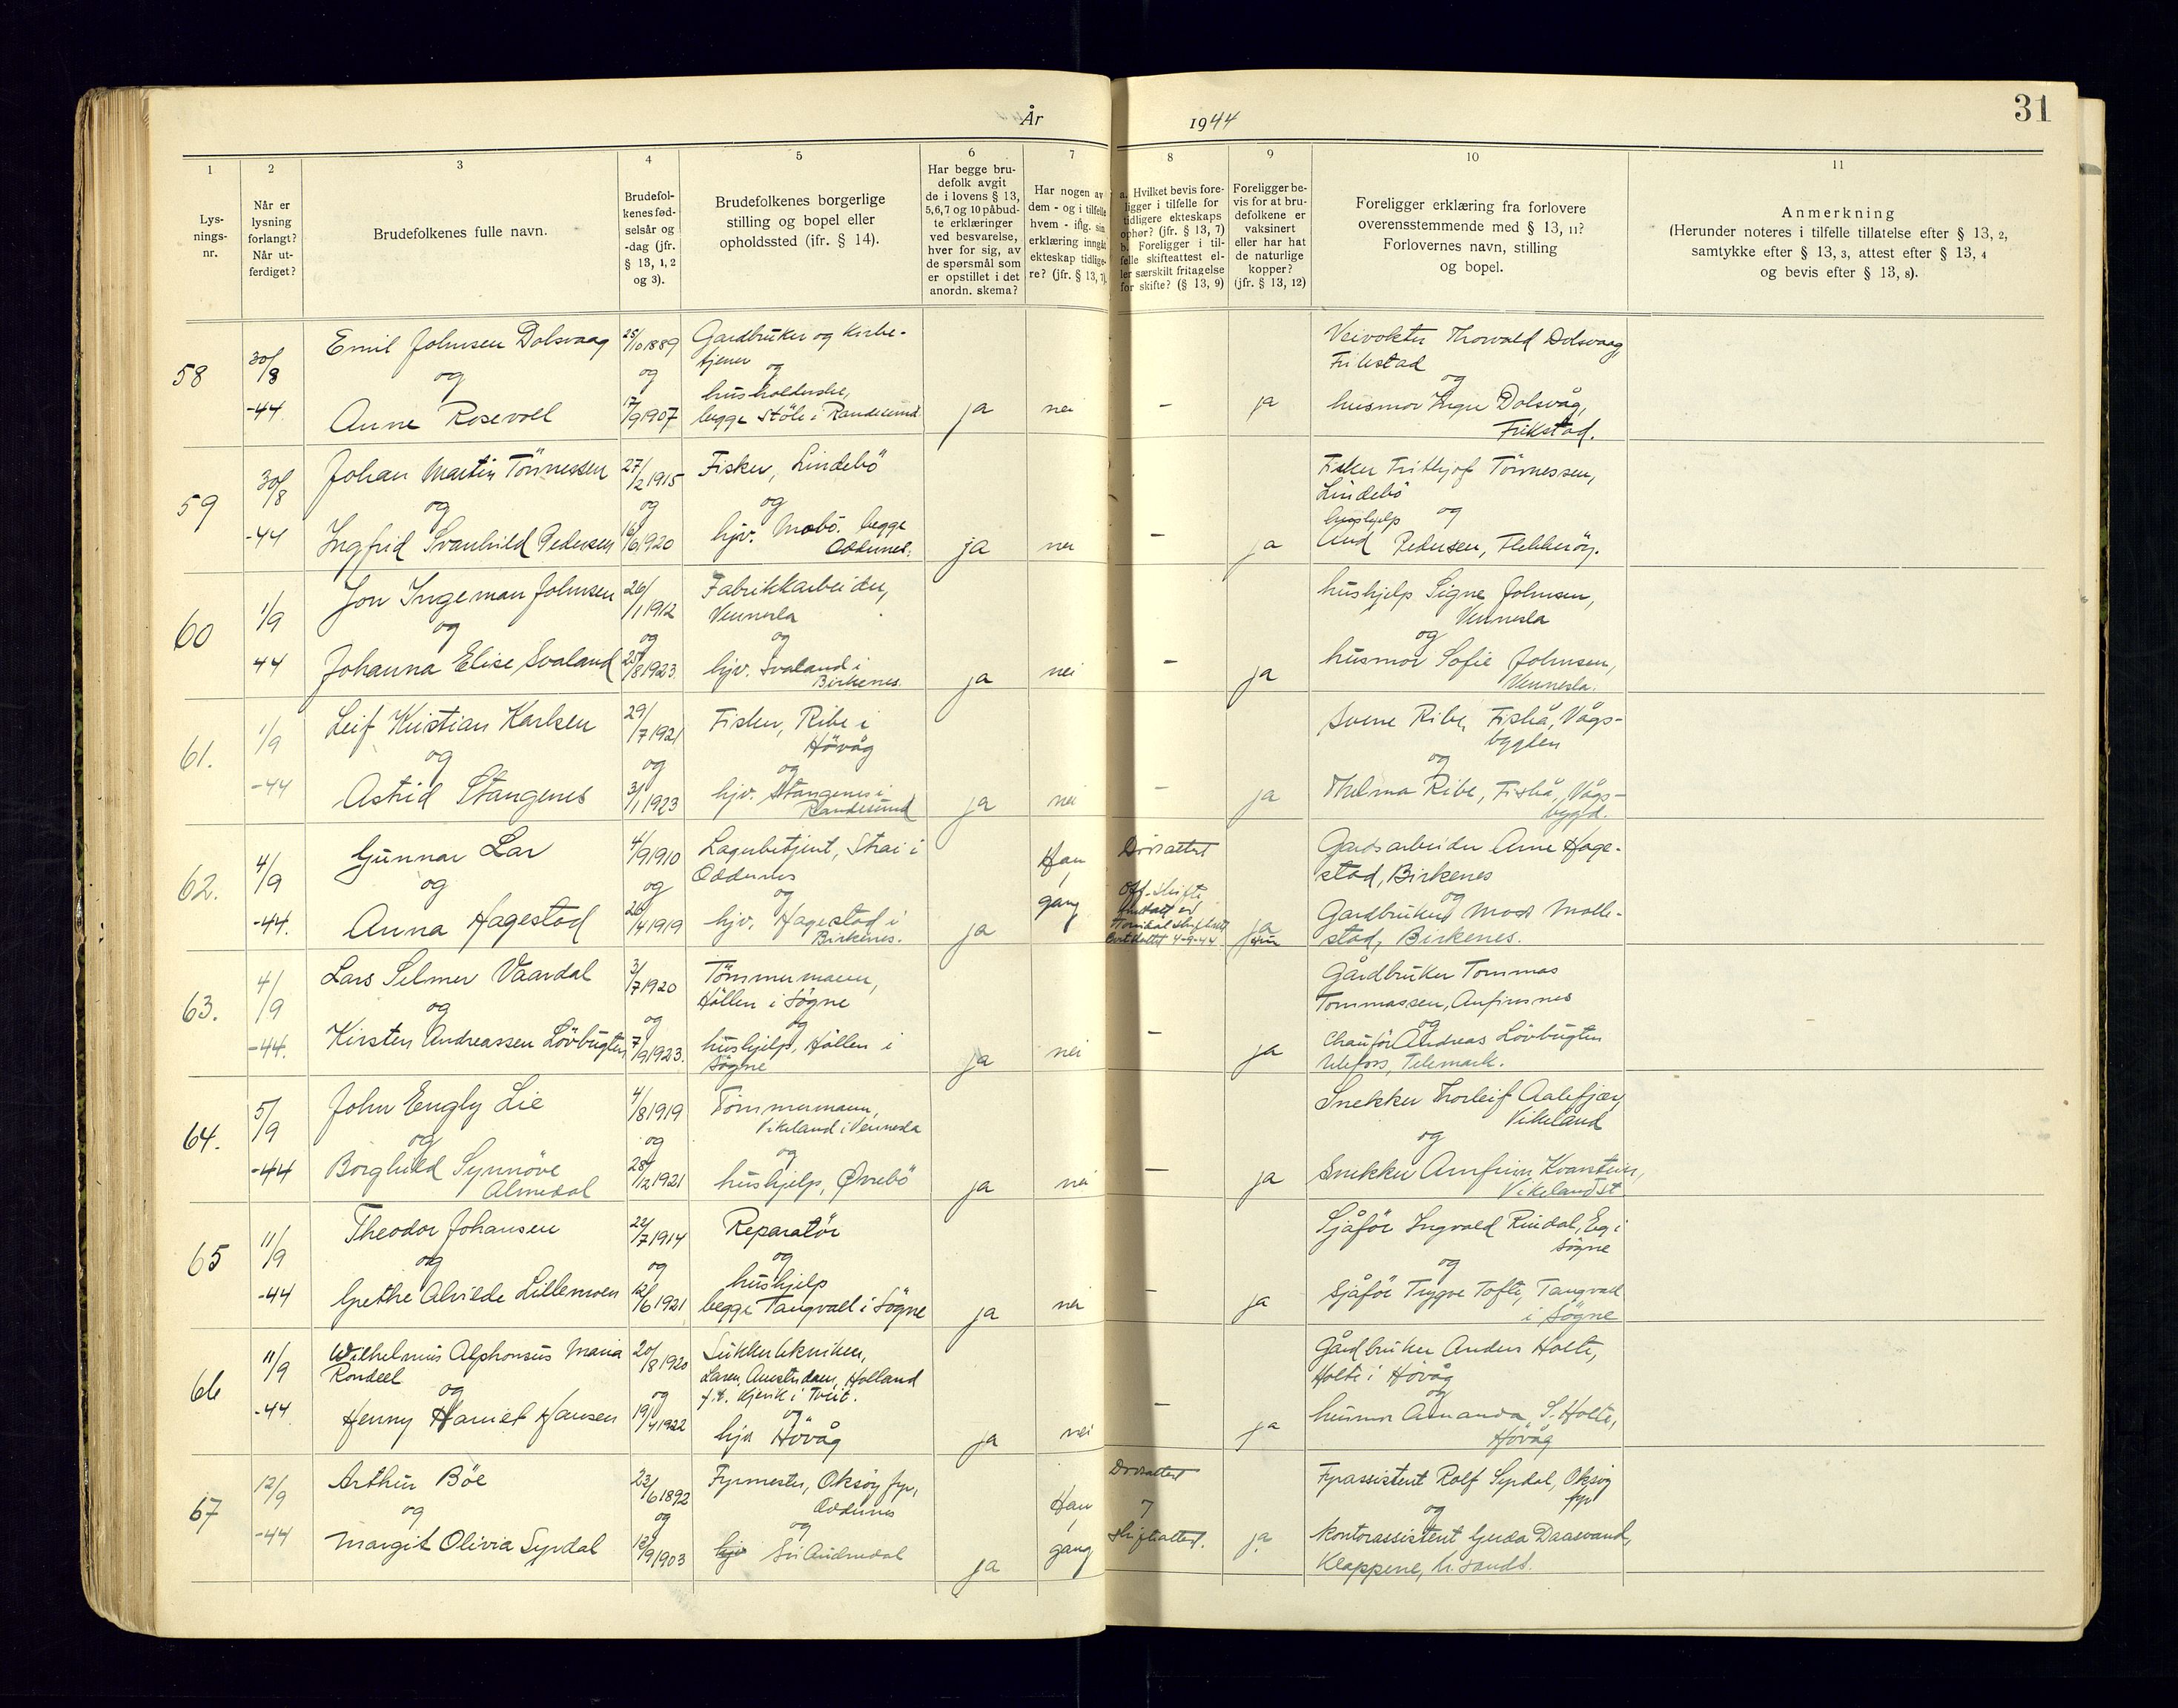 År 1944
31
1
Lys-
nings-
nr.
2
Når er
lysning
forlangt?
Når ut-
ferdiget?
3
Brudefolkenes fulle navn.
4
Brudefol-
kenes fød-
selsår og
-dag (jfr.
§ 13, 1, 2
og 3).
5
Brudefolkenes borgerlige
stilling og bopel eller
opholdssted (jfr. § 14).
6
Har begge bru-
defolk avgit
de i lovens § 13,
5,6,7 og 10 påbud-
te erklæringer
ved besvarelse,
hver for sig, av
de spørsmål som
er opstillet i det
anordn. skema?
7
Har nogen av
dem - og i tilfelle
hvem - iflg. sin
erklæring inngått
ekteskap tidlige-
re? (jfr. § 13, 7)
8
a. Hvilket bevis fore-
ligger i tilfelle for
tidligere ekteskaps
ophør? (jfr. § 13, 7)
b. Foreligger i til-
felle skifteattest el-
ler særskilt fritagelse
for skifte? (§ 13, 9)
9
Foreligger be-
vis for at bru-
defolkene er
vaksinert
eller har hat
de naturlige
kopper?
(jfr. § 13, 12)
10
Foreligger erklæring fra forlovere
overensstemmende med § 13, 11?
Forlovernes navn, stilling
og bopel.
11
Anmerkning
(Herunder noteres i tilfelle tillatelse efter § 13, 2,
samtykke efter § 13, 3, attest efter § 13, 4
og bevis efter § 13, 8).
58
30/8
-44
Emil Johnsen Dolsvaag
og
Anne Rosevoll
25/10 1889
og
17/9 1907
Gardbruker og kirke-
tjener
og
husholderske,
begge Støle i Randesund
ja
nei
-
ja
Veivokter Thorvald Dolsvaag
Frikstad
og
husmor Inger Dolsvåg,
Frikstad.
59
30/8
-44
Johan Martin Tönnessen
og
Ingfrid Svanhild Pedersen
27/2 1915
og
16/6 1920
Fisker, Lindebö
og
hjv. Mobö. begge
Oddernes.
ja
nei
-
ja
Fisker Frithjof Tönnessen,
Lindebö
hushjelp og
Aud Pedersen, Flekkeröy.
60
1/9
44
Jon Ingeman Johnsen
og
Johanna Elise Svaland
26/1 1912
og
25/8 1923.
Fabrikkarbeider,
Vennesla
og
hjv. Svaland i
Birkenes.
ja
nei
-
ja
hushjelp Signe Johnsen,
Vennesla
og
husmor Sofie Johnsen,
Vennesla.
61.
1/9
-44
Leif Kristian Karlsen
og
Astrid Stangenes
29/7 1921
og
3/1 1923
Fisker, Ribe i
Hövåg
og
hjv. Stangenes i
Randesund
ja
nei
-
ja
Sverre Ribe, Fiskå, Vågs-
bygden
og
Thelma Ribe, Fiskå, Vågs-
bygd.
62.
4/9
-44.
Gunnar Lar
og
Anna Hagestad
4/9 1910
og
26/4 1919
Lagerbetjent, Strai i
Oddernes
og
hjv. Hagestad i
Birkenes.
ja
Han,
gang
Dödsattest
Off. skifte
4-9-44
ja
Gardsarbeider Arne Hage-
stad, Birkenes
og
Gardbruker Mads Molle-
stad, Birkenes.
63.
4/9
-44.
Lars Selmer Vaardal
og
Kirsten Andreassen Lövbugten
3/7 1920
og
7/9 1923.
Tömmermann,
Höllen i Sögne
og
hushjelp, Höllen i
Sögne
ja
nei
-
ja
Gårdbruker Tommas
Tommassen, Anfinsnes
og
Chaufför Andreas Lövbugten
Ulefoss, Telemark.
64.
5/9
-44
John Engly Lie
og
Borghild Synnöve
Almedal
4/8 1919
og
28/12 1921
Tömmermann,
Vikeland i Vennesla
og
hushjelp, Øvrebö
ja
nei
-
ja
Snekker Thorleif Aalefjær,
Vikeland
og
Snekker Arnfinn Kvarstein,
Vikeland st.
65
11/9
-44
Theodor Johansen
og
Grethe Alvilde Lillemoen
22/7 1914
og
12/6 1921
Reparatör
og
hushjelp
begge Tangvall i Sögne
ja
nei
-
ja
Sjåför Ingvald Rindal, Eg i
Sögne
og
Sjåför Trygve Tofte, Tangvall
i Sögne
66
11/9
-44
Wilhelmus Alphonsus Maria
Rondeel
og
Henny Harriet Hansen
20/8 1920
og
19/4 1922
Sukkertekniker,
Laren, Amsterdam, Holland
f.t. Kjevik i Tveit.
og
hjv Hövåg
ja
nei
-
ja
Gårdbruker Anders Holte,
Holte i Hövåg
og
husmor Amanda S. Holte,
Hövåg
67
12/9
-44
Arthur Böe
og
Margit Olivia Syrdal
23/6 1892
og
12/9 1903
Fyrmester, Oksöy fyr,
Oddernes
og
hjv Søndredal
ja
Han,
gang
Dödsattest
7
skifteattest.
ja
Fyrassistent Rolf Syrdal, Oksöy
fyr
og
Kontorassistent Gerda Daasvand,
Klappene, Kr.sands.